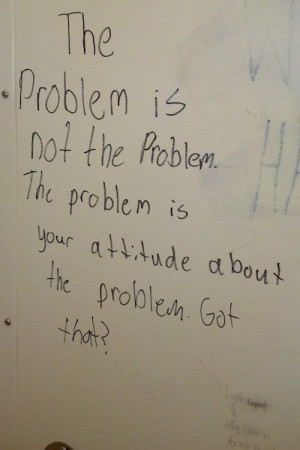 The
Problem is
not the Problem.
The problem is
your attitude about
the problem. Got
that?